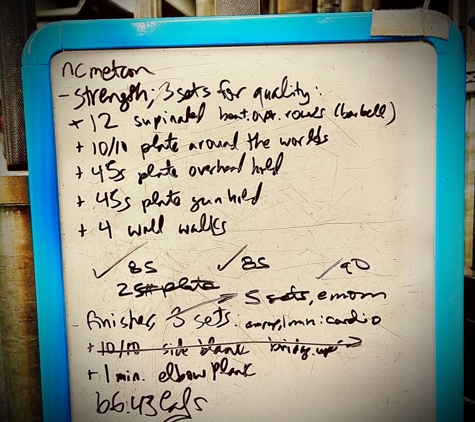 nc metcon
- strength; 3 sets for quality:
+ 12 supinated bent.over.rows (barbell)
+ 10/10 plate around the worlds
+ 45s plate overhead hold
+ 45s plate gun hold
+ 4 wall walks
✓ 85 ✓ 85 ✓ 90
25# plate
5 sets, emom
- finisher, 3 sets. cardio
+ 10/10 side blank bridge.ups
+ 1 min. elbow plank